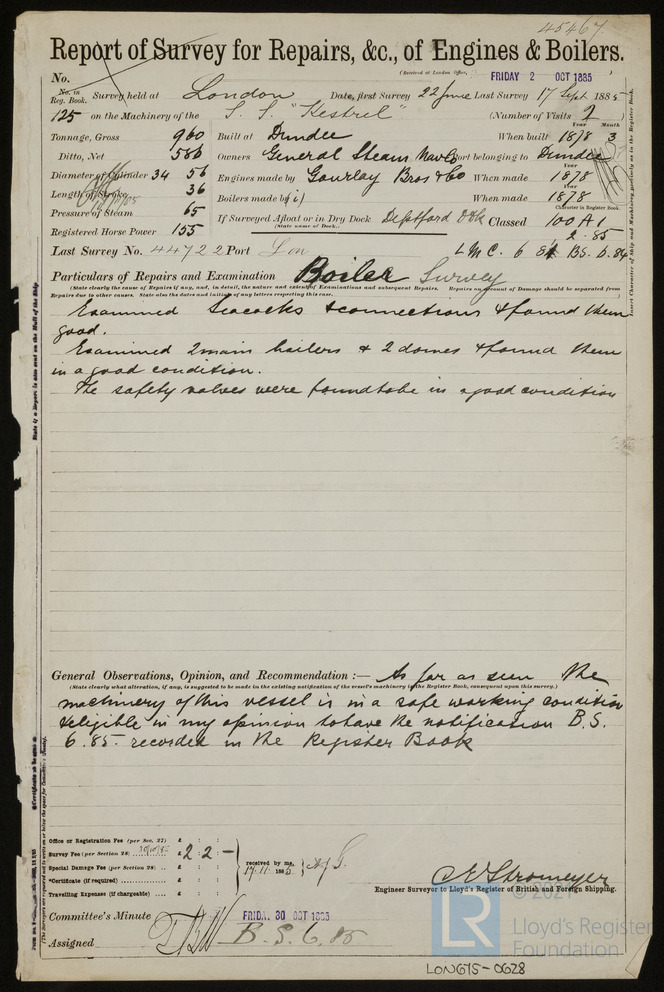 45467
Report of Survey for Repairs, &c., of Engines & Boilers.
(Received at London Office, FRIDAY 2 OCT 1885)
No.
No. in Reg. Book. Survey held at London Date, first Survey 22 June Last Survey 17 Sept 1885
125 on the Machinery of the S. S. "Kestrel" (Number of Visits 2)
Tonnage, Gross 960 Built at Dundee When built Year 1878 Month 3
Ditto, Net 586 Owners General Steam Nav Co Port belonging to Dundee
Diameter of Cylinder 34 56 Engines made by Gourlay Bros & Co When made Year 1878
Length of Stroke 36 Boilers made by (i) When made Year 1878
Pressure of Steam 65 If Surveyed Afloat or in Dry Dock Deptford Dk Classed Character in Register Book. 100 A1
(State name of Dock.)
Registered Horse Power 155 2.85
Last Survey No. 44722 Port Lon LMC. 6 84 BS. 6.84
Particulars of Repairs and Examination Boiler Survey
(State clearly the cause of Repairs if any, and, in detail, the nature and extent of Examinations and subsequent Repairs. Repairs on account of Damage should be separated from
Repairs due to other causes. State also the dates and initials of any letters respecting this case.)
Examined Seacocks & connections & found them
good.
Examined 2 main boilers & 2 domes & found them
in a good condition.
The safety valves were found to be in a good condition
General Observations, Opinion, and Recommendation :— As far as seen the
(State clearly what alteration, if any, is suggested to be made in the existing notification of the vessel's machinery in the Register Book, consequent upon this survey.)
machinery of this vessel is in a safe working condition
& eligible in my opinion to have the notification B.S.
6.85 recorded in the Register Book
Office or Registration Fee (per Sec. 27) £ : :
Survey Fee (per Section 28) £ 2 : 2 : –
Special Damage Fee (per Section 28) £ : :
*Certificate (if required) £ : :
Travelling Expenses (if chargeable) £ : :
received by me,
17.11.1885
C E Stromeyer
Engineer Surveyor to Lloyd's Register of British and Foreign Shipping.
Committee's Minute FRIDAY 30 OCT 1885
Assigned B.S. 6.85
© 2021
LR Lloyd's Register
Foundation
LON675-0628